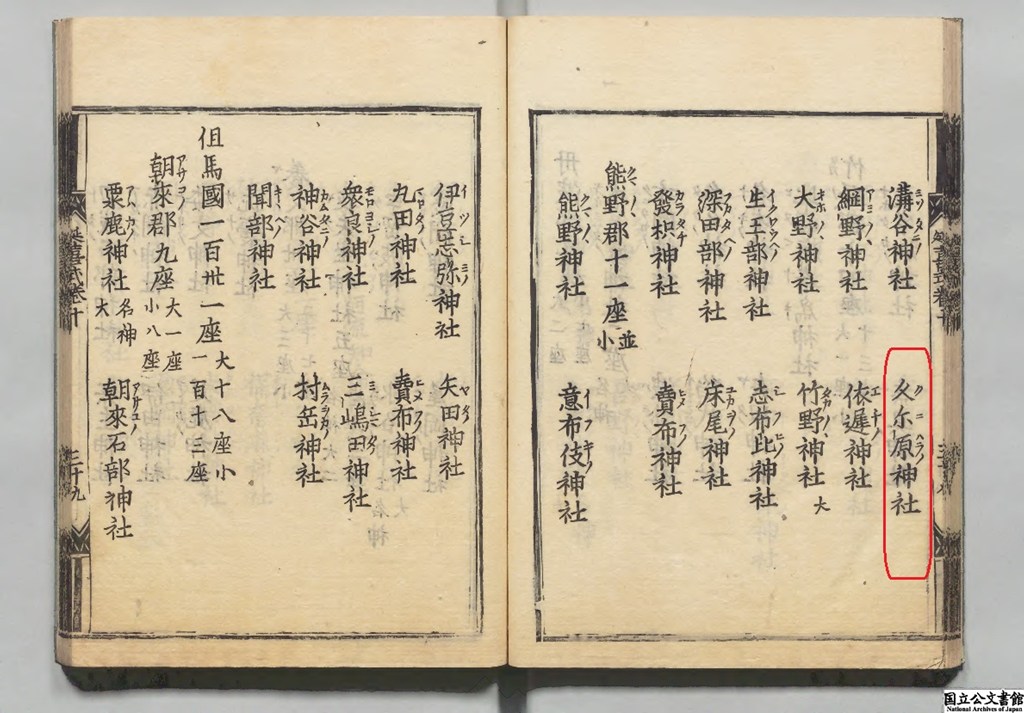 溝谷神社 久尓原神社
網野神社 依遲神社
大野神社 竹野神社 大
生王部神社 志布比神社
深田部神社 床尾神社
發枳神社 賣布神社
熊野郡十一座 並小
熊野神社 意布伎神社
伊豆志弥神社 矢田神社
丸田神社 賣布神社
衆良神社 三嶋田神社
神谷神社 村岳神社
聞部神社
但馬國一百卅一座 大十八座小一百十三座
朝來郡九座 大一座小八座
粟鹿神社 名神大 朝來石部神社
延喜式卷十
三十九
国立公文書館
National Archives of Japan